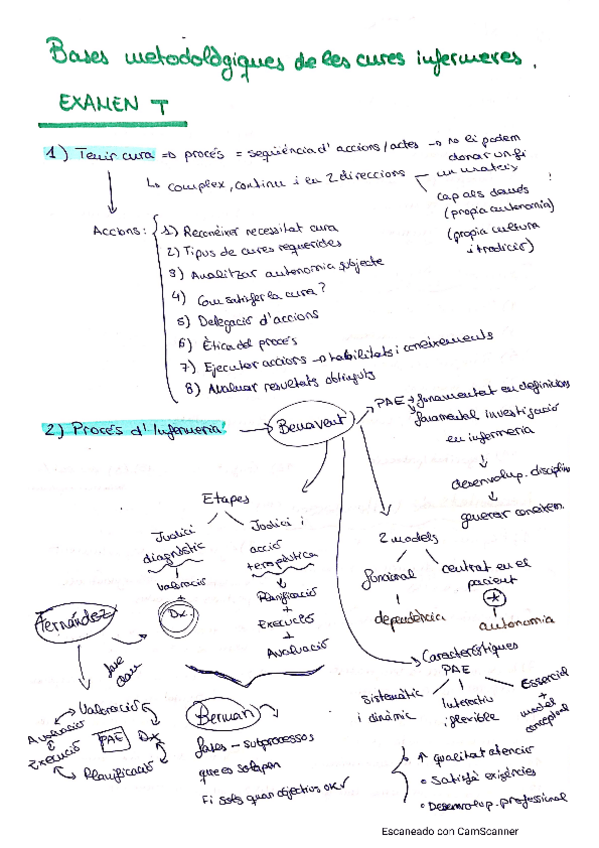 Bases metodològiques de les cures infermeres.
EXAMEN T
1) Tenir cura => procés = seqüència d'accions/actes -> no li podem
donar un fi
un mateix
↳ complex, continu i en 2 direccions
cap als demés
(propia autonomia)
(propia cultura
i tradició)
Accions:
1) Reconèixer necessitat cura
2) Tipus de cures requerides
3) Analitzar autonomia subjecte
4) Com satisfer la cura?
5) Delegació d'accions
6) Ètica del procés
7) Executar accions -> habilitats i coneixements
8) Avaluar resultats obtinguts
2) Procés d'Infermeria -> Benavent
PAE -> fonamentat en definicions
fonamental investigació
en infermeria
desenvolup. disciplina
generar coneixem.
Etapes
Judici
diagnòstic
valoració
+
Dx.
Judici i
acció
terapèutica
Planificació
+
Execució
+
Avaluació
2 models
funcional
dependència
centrat en el
pacient
*
autonomia
Fernández
fase
clau
Valoració
Dx
Planificació
Execució
Avaluació
PAE
Característiques
PAE
Sistemàtic
i dinàmic
Interactiu
i flexible
Essencial
+
model
conceptual
Berman
fases - subprocessos
que es solapen
Fi sols quan objectius OK✓
↑ qualitat atenció
Satisfà exigències
Desenvolup. professional
Escaneado con CamScanner